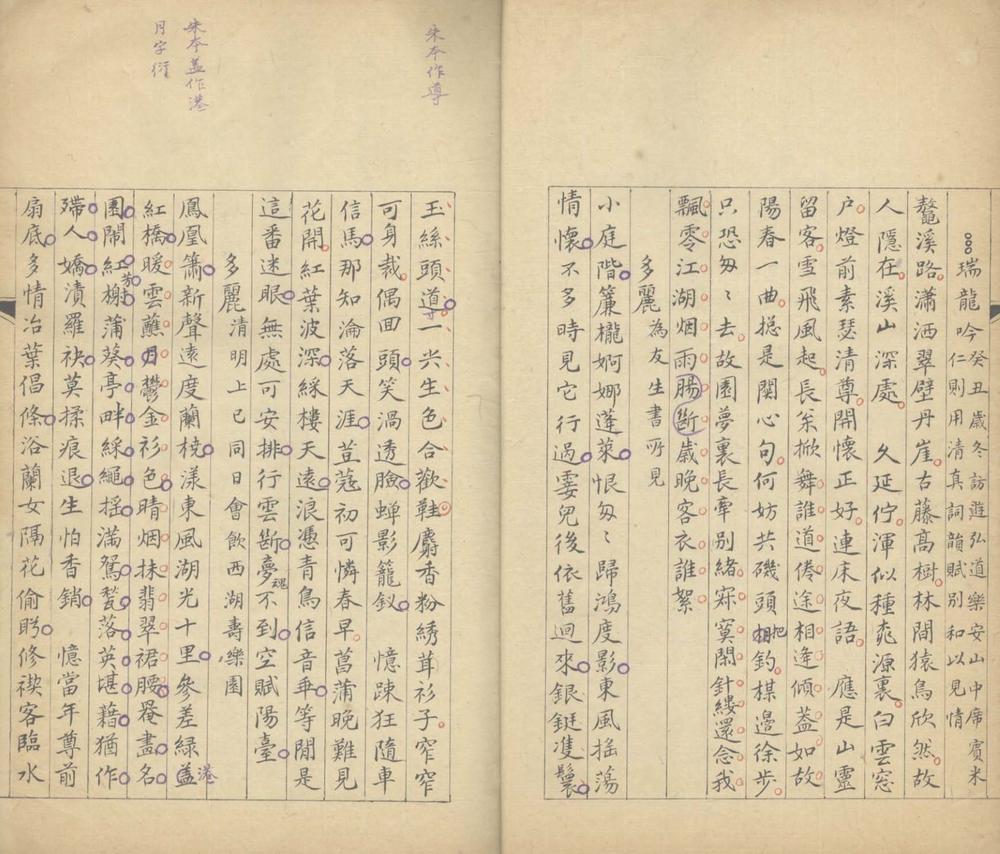 瑞龍吟癸丑歲冬訪遊弘道樂安山中席賓米
仁則用清真詞韻賦別和以見情
鼇溪路瀟洒翠壁丹崖古藤高樹林間猿鳥欣然故
人隱在溪山深處 久延佇渾似種桃源裏白雲窓
户燈前素瑟清尊開懷正好連床夜語 應是山靈
留客雪飛風起長松掀舞誰道倦途相逢傾蓋如故
陽春一曲摠是関心句何妨共磯頭相把釣槑邊徐步
只恐匆〻去故園夢裏長牽别緒寂寞閑針縷還念我
飄零江湖烟雨腸斷歲晚客衣誰絮
多麗為友生書所見
小庭階簾櫳婀娜蓬萊恨匆〻歸鴻度影東風搖蕩
情懷不多時見它行過霎兒後依舊迴來銀鋌雙鬟
朱本作導
玉絲頭道一尖生色合歡鞋麝香粉綉茸衫子窄窄
可身裁偶回頭笑渦透臉蟬影籠釵 憶踈狂隨車
信馬那知淪落天涯荳蔻初可憐春早菖蒲晚難見
花開紅葉波深綵樓天遠浪憑青鳥信音乖等閒是
這番迷眼無處可安排行雲斷夢魂不到空賦陽臺
多麗清明上巳同日會飲西湖壽樂園
朱本盖作港
月字衍
鳳凰簫新聲遠度蘭橈漾東風湖光十里參差綠盖港
紅橋暖雲蘸月鬱金衫色晴烟抹翡翠裙腰罨畫名
園鬧紅榭蒲葵亭畔綵繩搖滿鴛甃落英堪藉猶作
殢人嬌漬羅袂莫揉痕退生怕香銷 憶當年尊前
扇底多情冶葉倡條浴蘭女隔花偷盻修禊客臨水